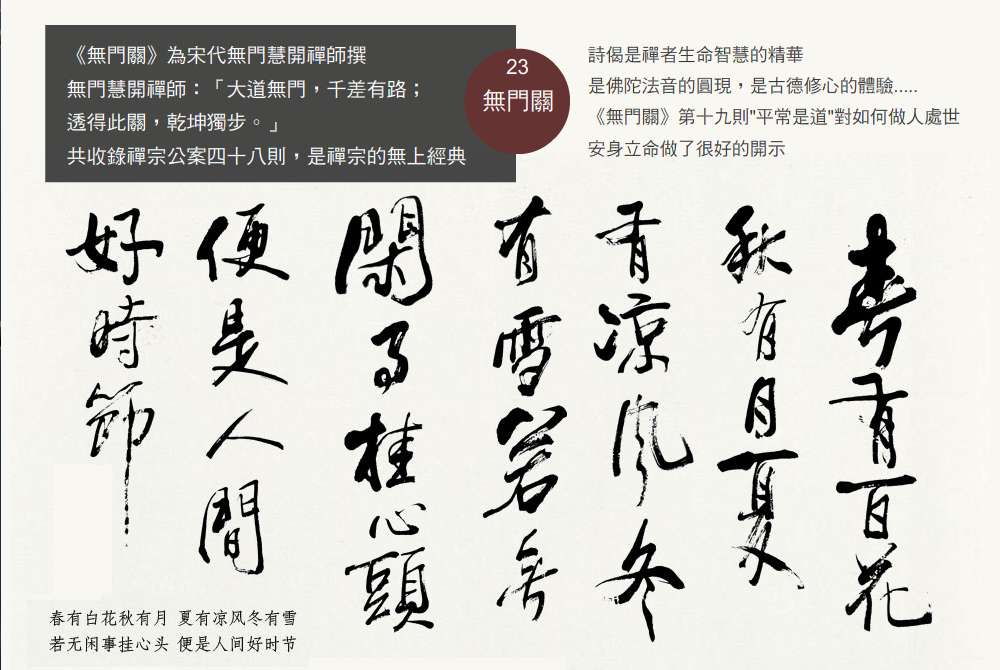 《無門關》為宋代無門慧開禪師撰
無門慧開禪師：「大道無門，千差有路；
透得此關，乾坤獨步。」
共收錄禪宗公案四十八則，是禪宗的無上經典
23
無門關
詩偈是禪者生命智慧的精華
是佛陀法音的圓現，是古德修心的體驗.....
《無門關》第十九則"平常是道"對如何做人處世
安身立命做了很好的開示
春有百花
秋有月夏
有涼風冬
有雪若無
閑事挂心頭
便是人間
好時節
春有白花秋有月 夏有凉风冬有雪
若无闲事挂心头 便是人间好时节